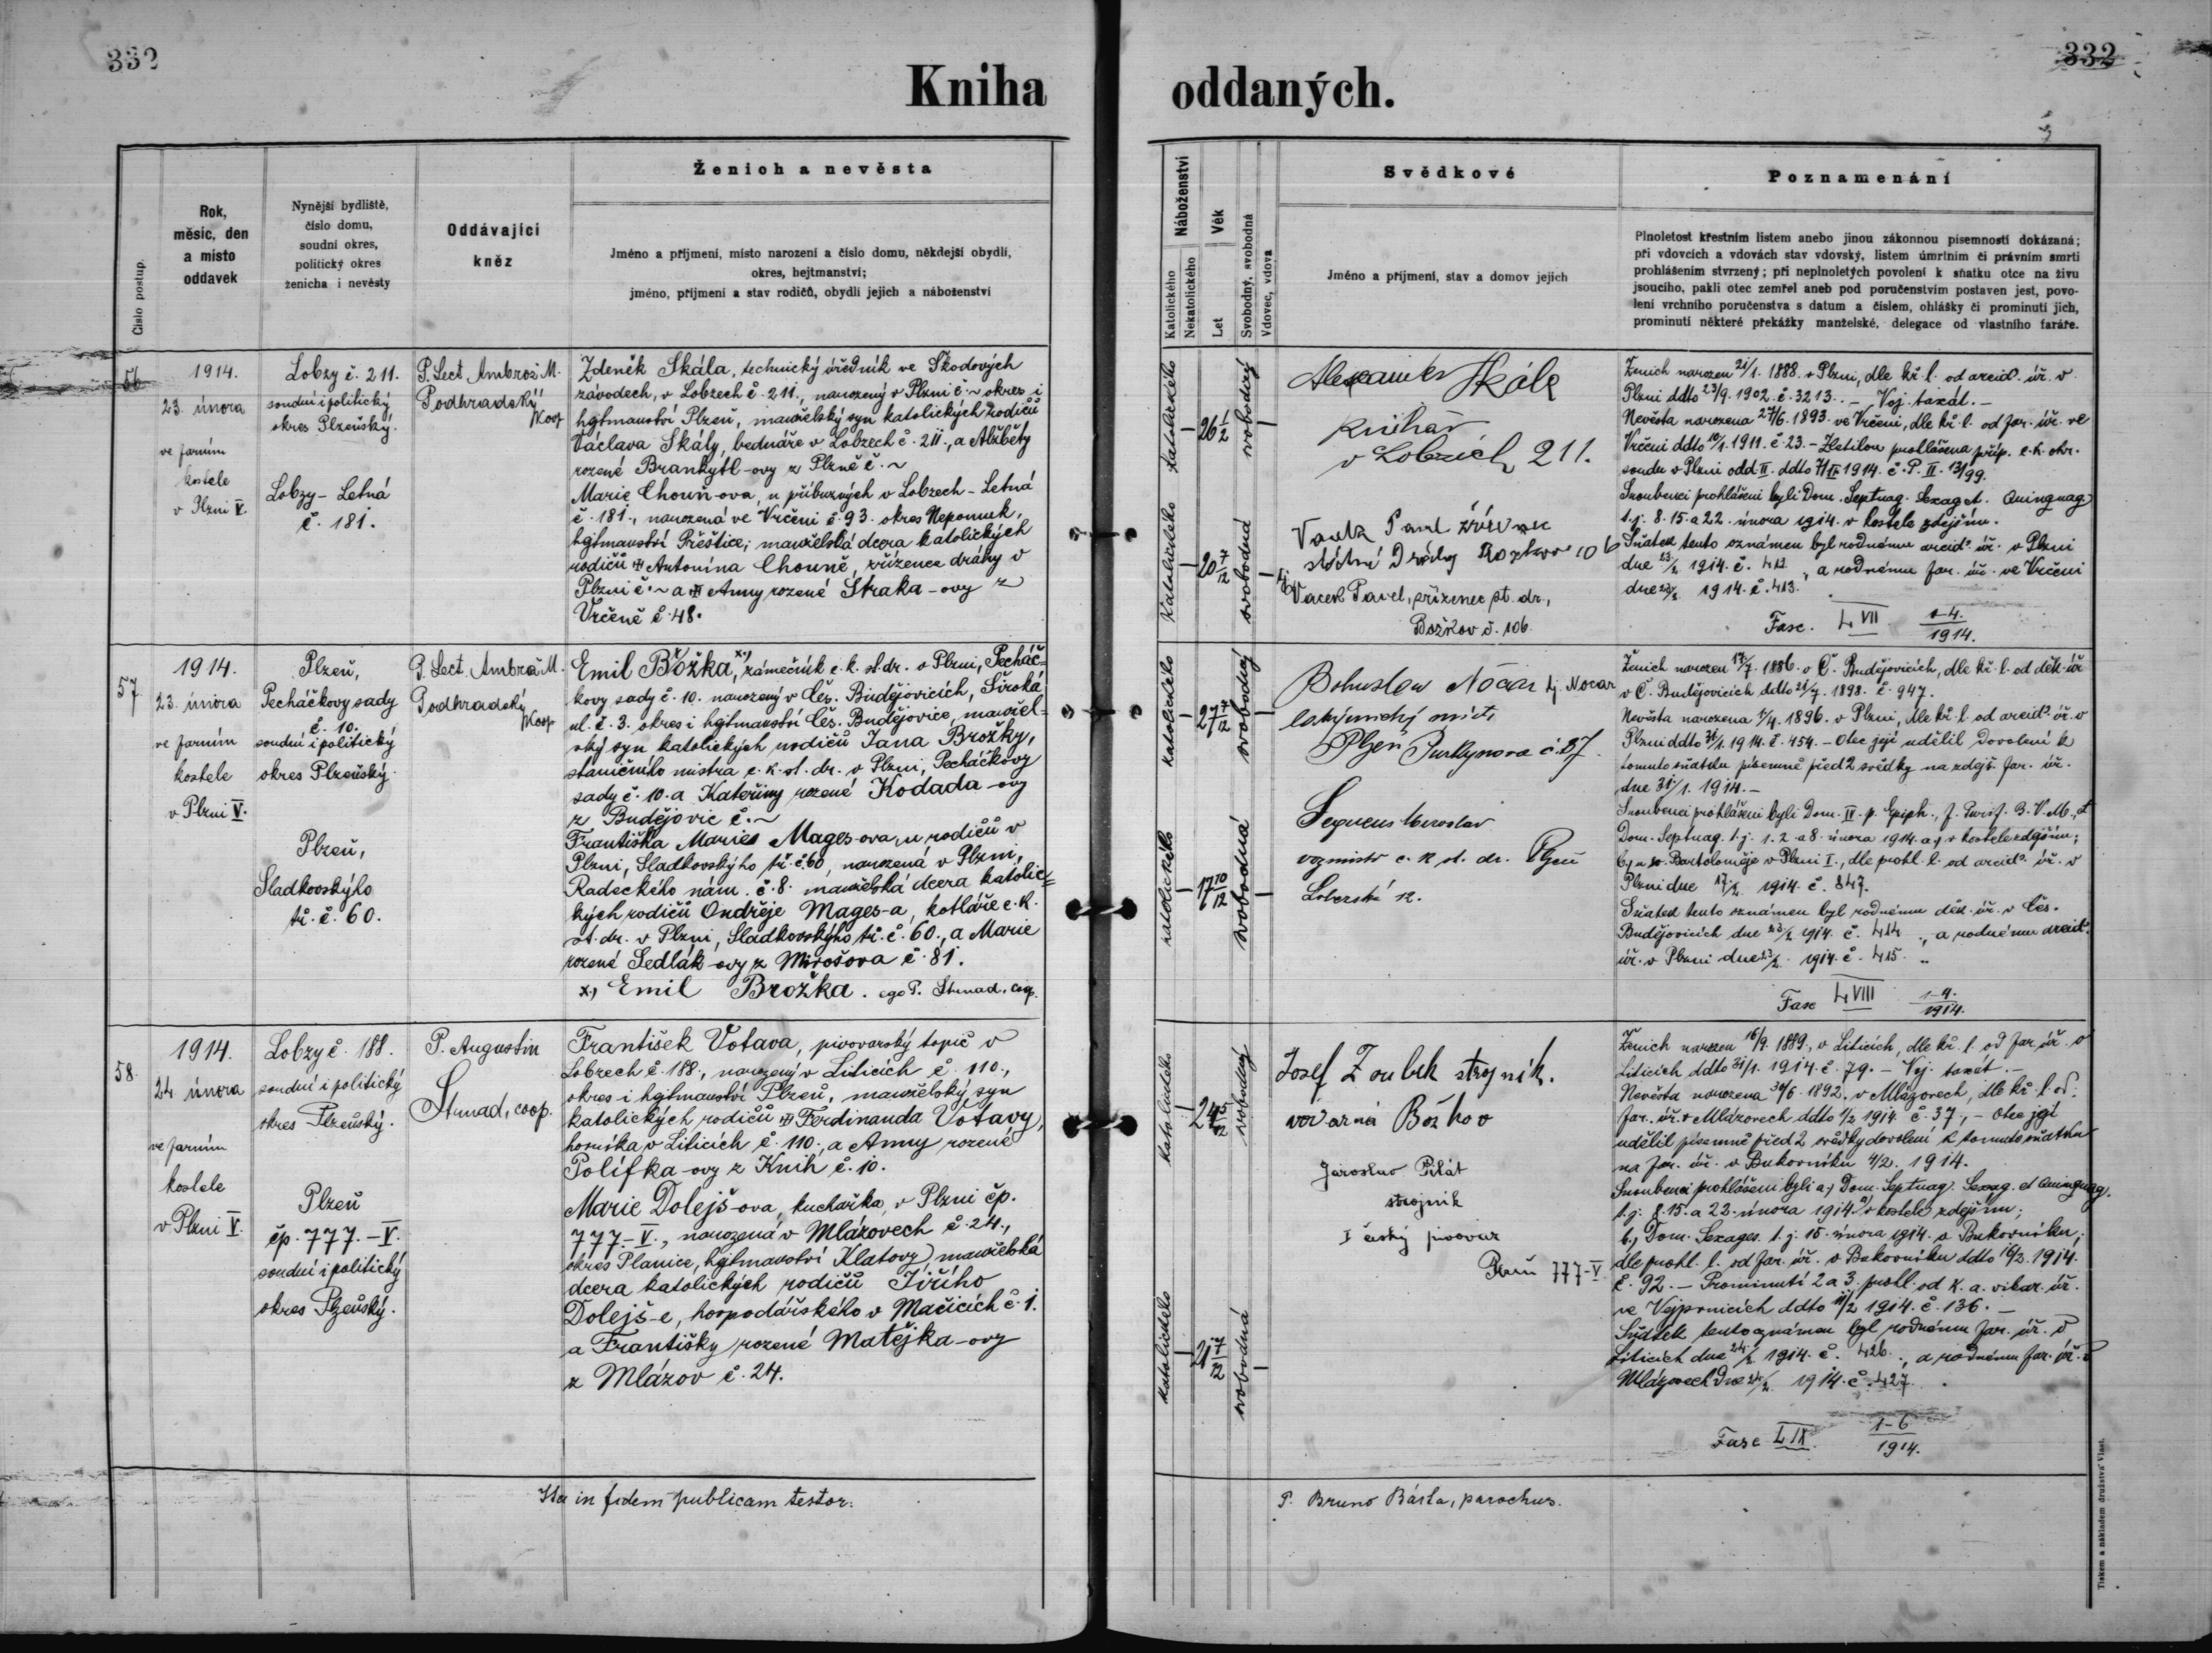 332
332
Kniha oddaných.
Číslo postup.
Rok,
měsíc, den
a místo
oddavek
Nynější bydliště,
číslo domu,
soudní okres,
politický okres
ženicha i nevěsty
Oddávající
kněz
Ženich a nevěsta
Jméno a příjmení, místo narození a číslo domu, někdejší obydlí,
okres, hejtmanství;
jméno, příjmení a stav rodičů, obydlí jejich a náboženství
56
1914.
23. února
ve farním
kostele
v Plzni V.
Lobzy č. 211.
soudní i politický
okres Plzeňský.
Lobzy - Letná
č. 181.
P. Lect. Ambrož M.
Podhradský
Koop
Zdeněk Skála, technický úředník ve Škodových
závodech, v Lobzech č. 211., narozený v Plzni č. ~ okres i
hejtmanství Plzeň, manželský syn katolických rodičů
Václava Skály, bednáře v Lobzech č. 211., a Alžběty
rozené Brankytl-ovy z Plzně č. ~
Marie Chouň-ova, u příbuzných v Lobzech - Letná
č. 181., narozená ve Vrčeni č. 93. okres Nepomuk,
hejtmanství Přeštice; manželská dcera katolických
rodičů Antonína Chouně, zřízence dráhy v
Plzni č. ~ a Anny rozené Straka-ovy z
Vrčeně č. 48.
57
1914.
23. února
ve farním
kostele
v Plzni V.
Plzeň,
Pecháčkovy sady
č. 10.
soudní i politický
okres Plzeňský.
Plzeň,
Sladkovského
tř. č. 60.
P. Lect. Ambrož M.
Podhradský
Koop
Emil Božka, x) zámečník c. k. st. dr. v Plzni, Pecháč-
kovy sady č. 10. narozený v Čes. Budějovicích, Široká
ul. č. 3. okres i hejtmanství Čes. Budějovice, manžel-
ský syn katolických rodičů Jana Brožky,
staničního mistra c. k. st. dr. v Plzni, Pecháčkovy
sady č. 10. a Kateřiny rozené Kodada-ovy
z Budějovic č. ~
Františka Marie Mages-ova, u rodičů v
Plzni, Sladkovského tř. č. 60, narozená v Plzni,
Radeckého nám. č. 8. manželská dcera katolic-
kých rodičů Ondřeje Mages-a, kotláře c. k.
st. dr. v Plzni, Sladkovského tř. č. 60., a Marie
rozené Sedlák-ovy z Mirošova č. 81.
x) Emil Brožka. ego P. Strnad, coop.
58.
1914.
24. února
ve farním
kostele
v Plzni V.
Lobzy č. 188.
soudní i politický
okres Plzeňský.
Plzeň
čp. 777. - V.
soudní i politický
okres Plzeňský.
P. Augustin
Strnad, coop.
František Votava, pivovarský topič v
Lobzech č. 188., narozený v Liticích č. 110.,
okres i hejtmanství Plzeň, manželský syn
katolických rodičů Ferdinanda Votavy,
horníka v Liticích č. 110., a Anny rozené
Polífka-ovy z Knih č. 10.
Marie Dolejš-ova, kuchařka, v Plzni čp.
777-V., narozená v Mlázovech č. 24.,
okres Planice, hejtmanství Klatovy, manželská
dcera katolických rodičů Jiřího
Dolejš-e, hospodářského v Mačicích č. 1.
a Františky rozené Matějka-ovy
z Mlázov č. 24.
Ita in fidem publicam testor:
Náboženství
Katolického
Nekatolického
Věk
Let
Svobodný, svobodná
Vdovec, vdova
Svědkové
Jméno a příjmení, stav a domov jejich
Poznamenání
Plnoletost křestním listem anebo jinou zákonnou písemností dokázaná;
při vdovcích a vdovách stav vdovský, listem úmrtním či právním smrti
prohlášením stvrzený; při neplnoletých povolení k sňatku otce na živu
jsoucího, pakli otec zemřel aneb pod poručenstvím postaven jest, povo-
lení vrchního poručenstva s datum a číslem, ohlášky či prominutí jich,
prominutí některé překážky manželské, delegace od vlastního faráře.
katolického
26 1/2
svobodný
katolického
20 7/12
svobodná
Alexander Skála
knihař
v Lobzích 211.
Pavel zřízenec
státní Dráhy 106
tj. Vacek Pavel, zřízenec st. dr.,
Božkov č. 106.
Ženich narozen 21/1. 1888. v Plzni, dle kř. l. od arcid. úř. v
Plzni ddto 23/9. 1902. č. 3213. - Voj. taxát. -
Nevěsta narozena 27/6. 1893. ve Vrčeni, dle kř. l. od far. úř. ve
Vrčeni ddto 10/1. 1911. č. 23. - Zletilou prohlášena příp. c. k. okr.
soudu v Plzni odd. II. ddto 7/II 1914. č. P. II. 13/99.
Snoubenci prohlášeni byli Dom. Septuag. Sexag. et Quinquag.
t. j. 8. 15. a 22. února 1914. v kostele zdejším.
Sňatek tento oznámen byl rodnému arcid. úř. v Plzni
dne 23/2 1914. č. 412., a rodnému far. úř. ve Vrčeni
dne 23/2 1914. č. 413.
Fasc. LVII 1-4. 1914.
katolického
27 7/12
svobodný
katolického
17 10/12
svobodná
Bohuslav Nocar tj. Nocar
Plzeň Purkyňova č. 37
Sequens Miroslav
vozmistr c. k. st. dr. Plzeň
Lobezská 12.
Ženich narozen 17/7. 1886. v Č. Budějovicích, dle kř. l. od děk. úř.
v Č. Budějovicích ddto 21/7. 1898. č. 947.
Nevěsta narozena 1/4. 1896. v Plzni, dle kř. l. od arcid. úř. v
Plzni ddto 31/1. 1914. č. 454. - Otec její udělil dovolení k
tomuto sňatku písemně před 2 svědky na zdejš. far. úř.
dne 31/1. 1914. -
Snoubenci prohlášeni byli Dom. IV. p. Epiph., f. Purif. B. V. M., et
Dom. Septuag. t. j. 1. 2. a 8. února 1914. a) v kostele zdejším;
b) u sv. Bartoloměje v Plzni I., dle prohl. l. od arcid. úř. v
Plzni dne 17/2. 1914. č. 847.
Sňatek tento oznámen byl rodnému děk. úř. v Čes.
Budějovicích dne 23/2 1914. č. 414., a rodnému arcid.
úř. v Plzni dne 23/2. 1914. č. 415.
Fasc LVIII 1-4. 1914.
katolického
svobodný
katolického
21 7/12
svobodná
Josef Zoubek strojník.
Božkov
Jaroslav Pilát
strojník
I český pivovar
Plzeň 777-V.
Ženich narozen 16/9. 1889., v Liticích, dle kř. l. od far. úř. v
Liticích ddto 31/1. 1914. č. 79. - Voj. taxát. -
Nevěsta narozena 30/6. 1892. v Mlázovech, dle kř. l. od
far. úř. v Mlázovech ddto 1/2 1914. č. 37., - Otec její
udělil písemně před 2 svědky dovolení k tomuto sňatku
na far. úř. v Bukovníku 4/2. 1914.
Snoubenci prohlášeni byli a) Dom. Septuag. Sexag. et Quinquag.
t. j. 8. 15. a 22. února 1914. v kostele zdejším;
b) Dom. Sexages. t. j. 15. února 1914. v Bukovníku,
dle prohl. l. od far. úř. v Bukovníku ddto 16/2. 1914.
č. 92. - Prominutí 2 a 3. prohl. od k. a. vikar. úř.
ve Vejprnicích ddto 11/2 1914. č. 136. -
Sňatek tento oznámen byl rodnému far. úř. v
Liticích dne 24/2 1914. č. 426., a rodnému far. úř. v
Mlázovech dne 24/2. 1914. č. 427.
Fasc LIX. 1-6 1914.
P. Bruno Bárta, parochus.
Tiskem a nákladem družstva Vlast.